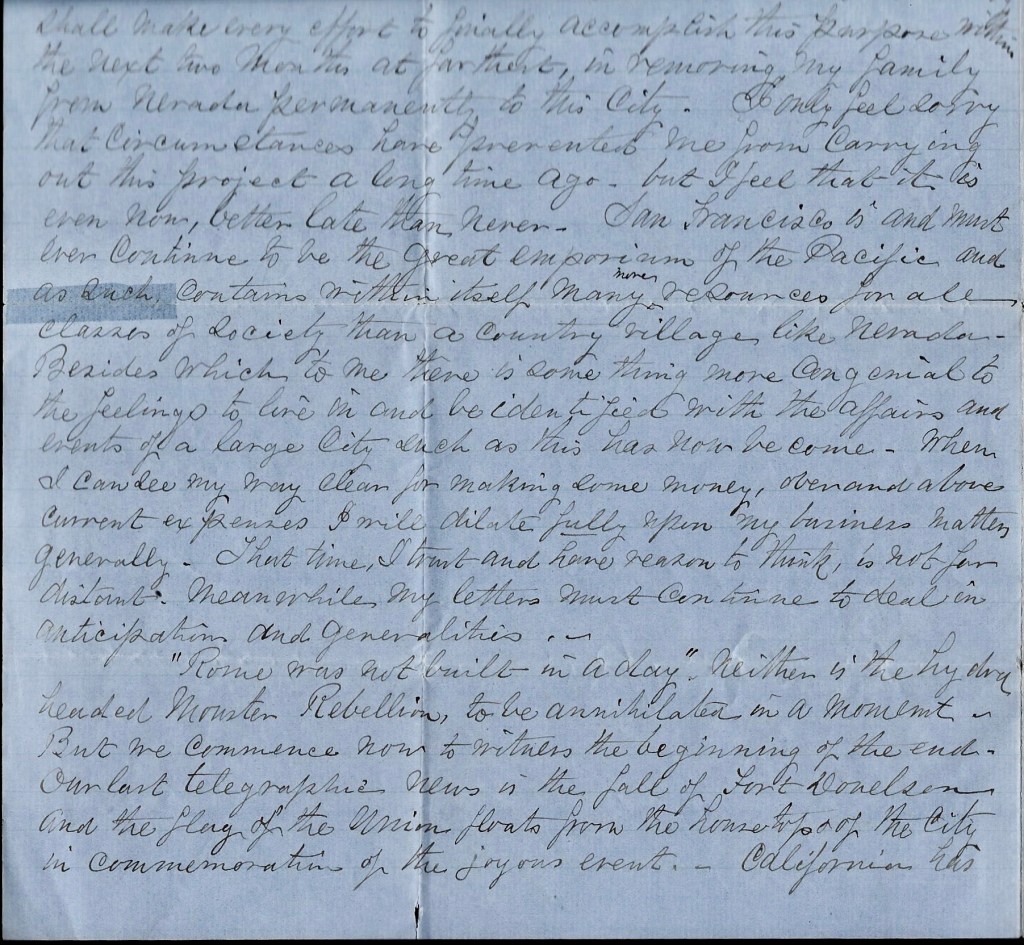 shall make every effort to finally accomplish this purpose within
the next two Months at farthest, in removing my family
from Nevada permanently to this City. I only feel sorry
that Circumstances have prevented me from Carrying
out this project a long time ago - but I feel that it is
even now, better late than never - San Francisco is and must
ever Continue to be the great emporium of the Pacific and
as such, contains within itself many more resources for all
classes of society than a country village like Nevada -
Besides which to me there is some thing more congenial to
the feelings to live in and be identified with the affairs and
events of a large City such as this has now become - When
I can see my way clear for making some money, over and above
current expenses I will dilate fully upon my business matters
generally - That time, I trust and have reason to think, is not far
distant. Meanwhile my letters must continue to deal in
anticipations and generalities . ~
"Rome was not built in a day". Neither is the hydra
headed Monster Rebellion, to be annihilated in a moment ~
But we commence now to witness the beginning of the end -
Our last telegraphic news is the fall of Fort Donelson
and the flag of the Union floats from the housetops of the City
in commemoration of the joyous event. - California has